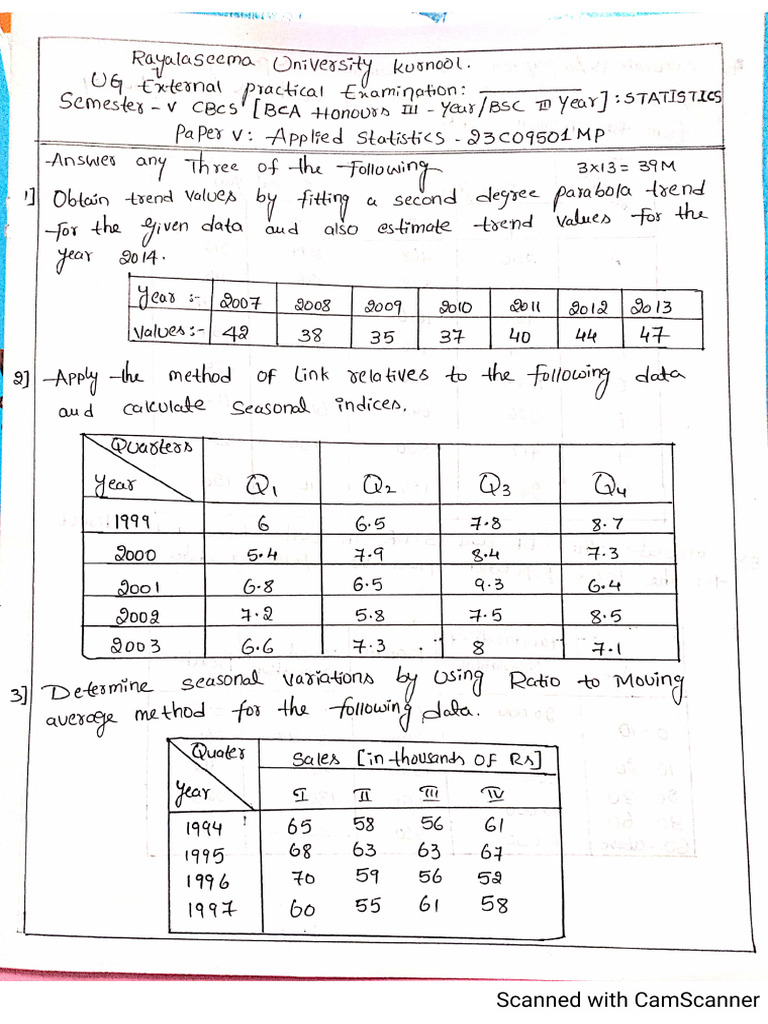 Rayalaseema University Kurnool.
UG External practical Examination:
Semester-V CBCS [BCA Honours III-Year/BSC III Year]: STATISTICS
Paper V: Applied Statistics - 23C09501MP
Answer any Three of the following 3x13=39M
1] Obtain trend values by fitting a second degree parabola trend
for the given data and also estimate trend values for the
year 2014.
Year :- 2007 2008 2009 2010 2011 2012 2013
Values:- 42 38 35 37 40 44 47
2] Apply the method of Link relatives to the following data
and calculate seasonal indices.
Quarters
Year Q1 Q2 Q3 Q4
1999 6 6.5 7.8 8.7
2000 5.4 7.9 8.4 7.3
2001 6.8 6.5 9.3 6.4
2002 7.2 5.8 7.5 8.5
2003 6.6 7.3 8 7.1
3] Determine seasonal variations by using Ratio to Moving
average method for the following data.
Quater Sales [in thousands of Rs]
Year I II III IV
1994 65 58 56 61
1995 68 63 63 67
1996 70 59 56 52
1997 60 55 61 58
Scanned with CamScanner